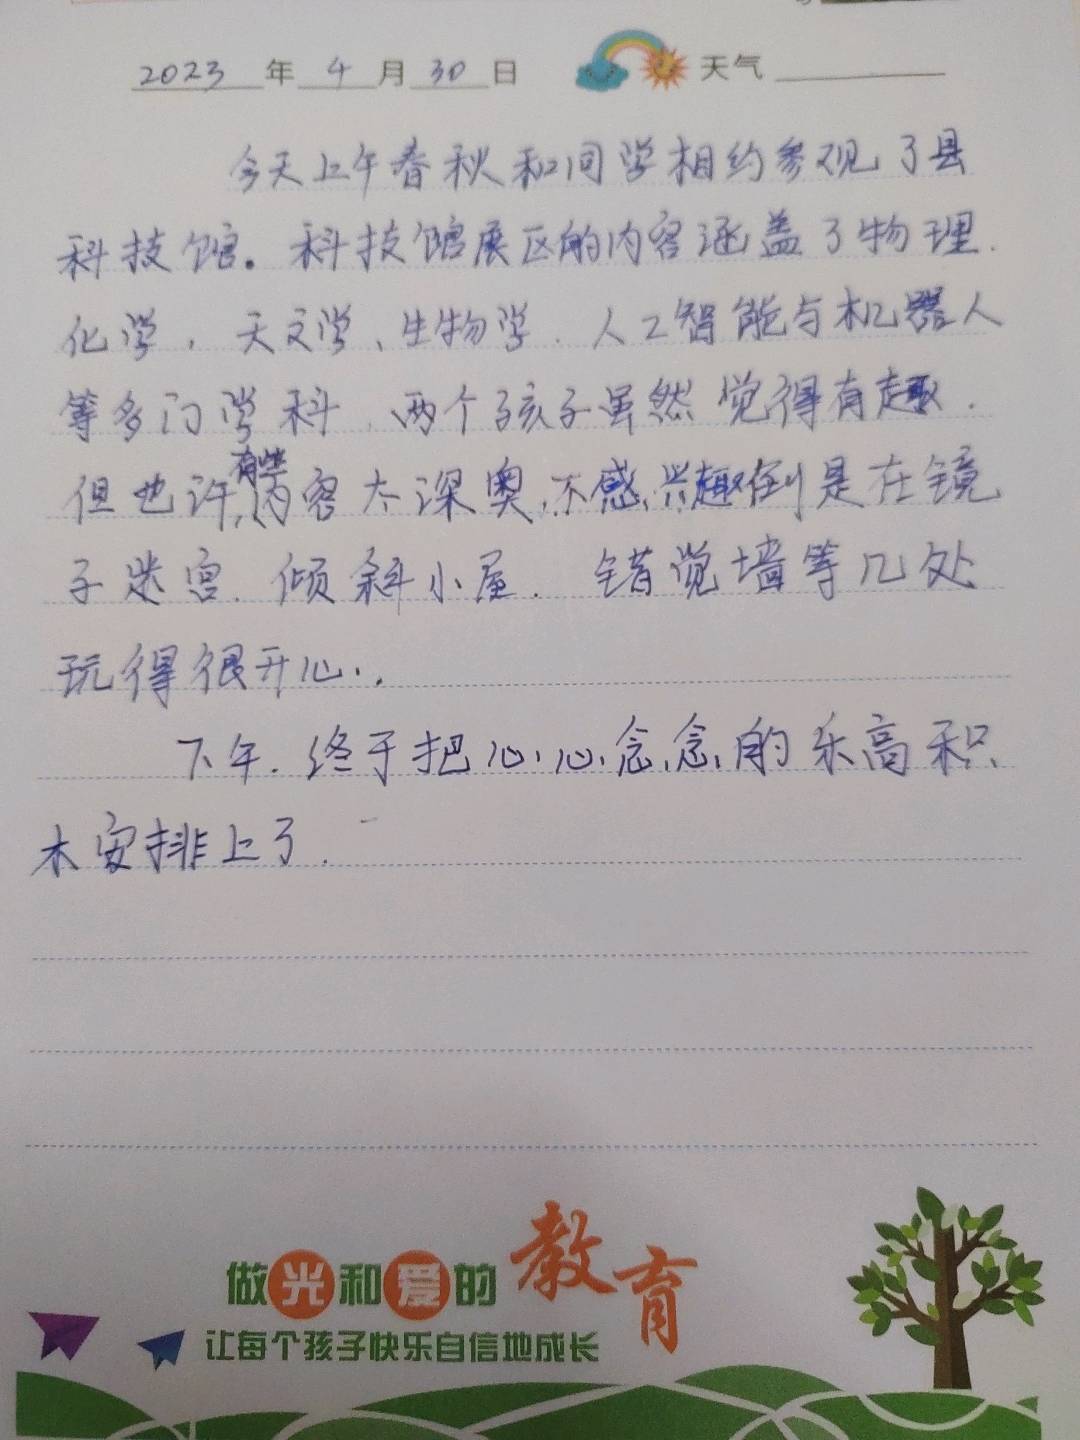 2023年4月30日 天气
今天上午春秋和同学相约参观了县
科技馆。科技馆展区的内容涵盖了物理.
化学、天文学、生物学、人工智能与机器人
等多门学科,两个孩子虽然觉得有趣.
但也许有些内容太深奥,不感兴趣倒是在镜
子迷宫.倾斜小屋.错觉墙等几处
玩得很开心.
下午.终于把心心念念的乐高积
木安排上了.
做光和爱的教育
让每个孩子快乐自信地成长